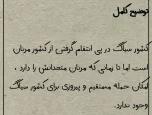 توضیح کامل
کشور سیاک در پی انتقام گرفتن از کشور مرتان
است اما تا زمانی که مرتان متحدانش را دارد ،
امکان حمله مستقیم و پیروزی برای کشور سیاگ
وجود ندارد.